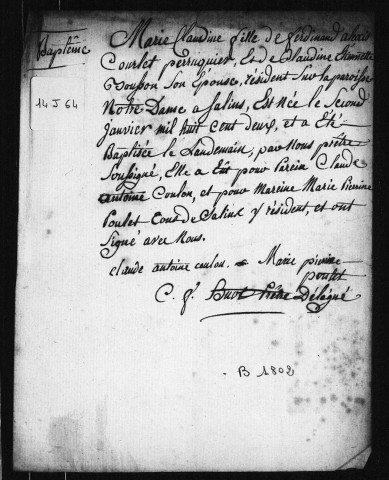 Baptême
14 J 64
Marie Claudine fille de ferdinand alexis
Courlet perruquier, et de Claudine
son Épouse, résident sur la paroisse
Notre Dame a Salins, Est Née le Second
Janvier mil huit cent deux, et a Eté
Baptisée le Landemain, par Nous prêtre
Soussigné, Elle a Eût pour Parein Claude
antoine Coulon, et pour Mareine Marie Pierrine
Poulet tous de Salins y résident, et ont
Signé avec Nous.
claude antoine coulon. Marie pierrine
poulet
C. f. Prêtre Délégué
B 1802